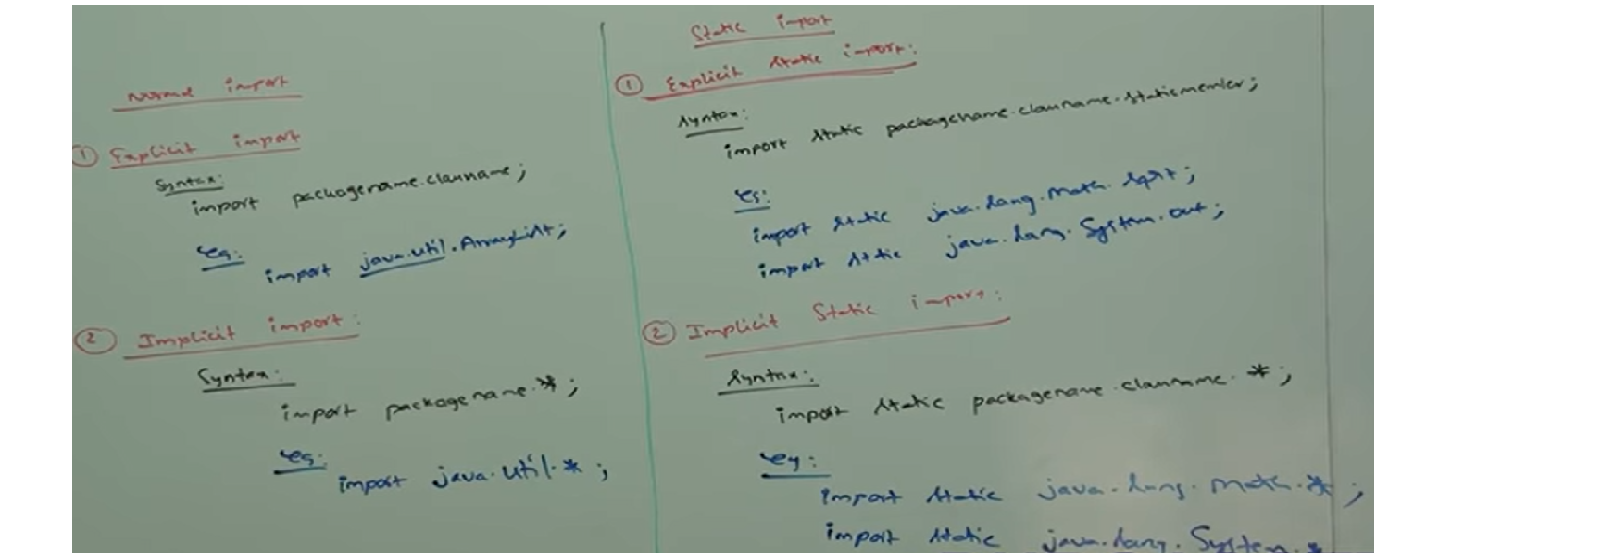 Normal import
① Explicit import
Syntax:
import packagename.classname;
eg:
import java.util.ArrayList;
② Implicit import:
Syntax:
import packagename.*;
eg:
import java.util.*;
Static import
① Explicit static import:
Syntax:
import static packagename.classname.staticmember;
eg:
import static java.lang.Math.sqrt;
import static java.lang.System.out;
② Implicit Static import:
Syntax:
import static packagename.classname.*;
eg:
import static java.lang.Math.*;
import static java.lang.System.*